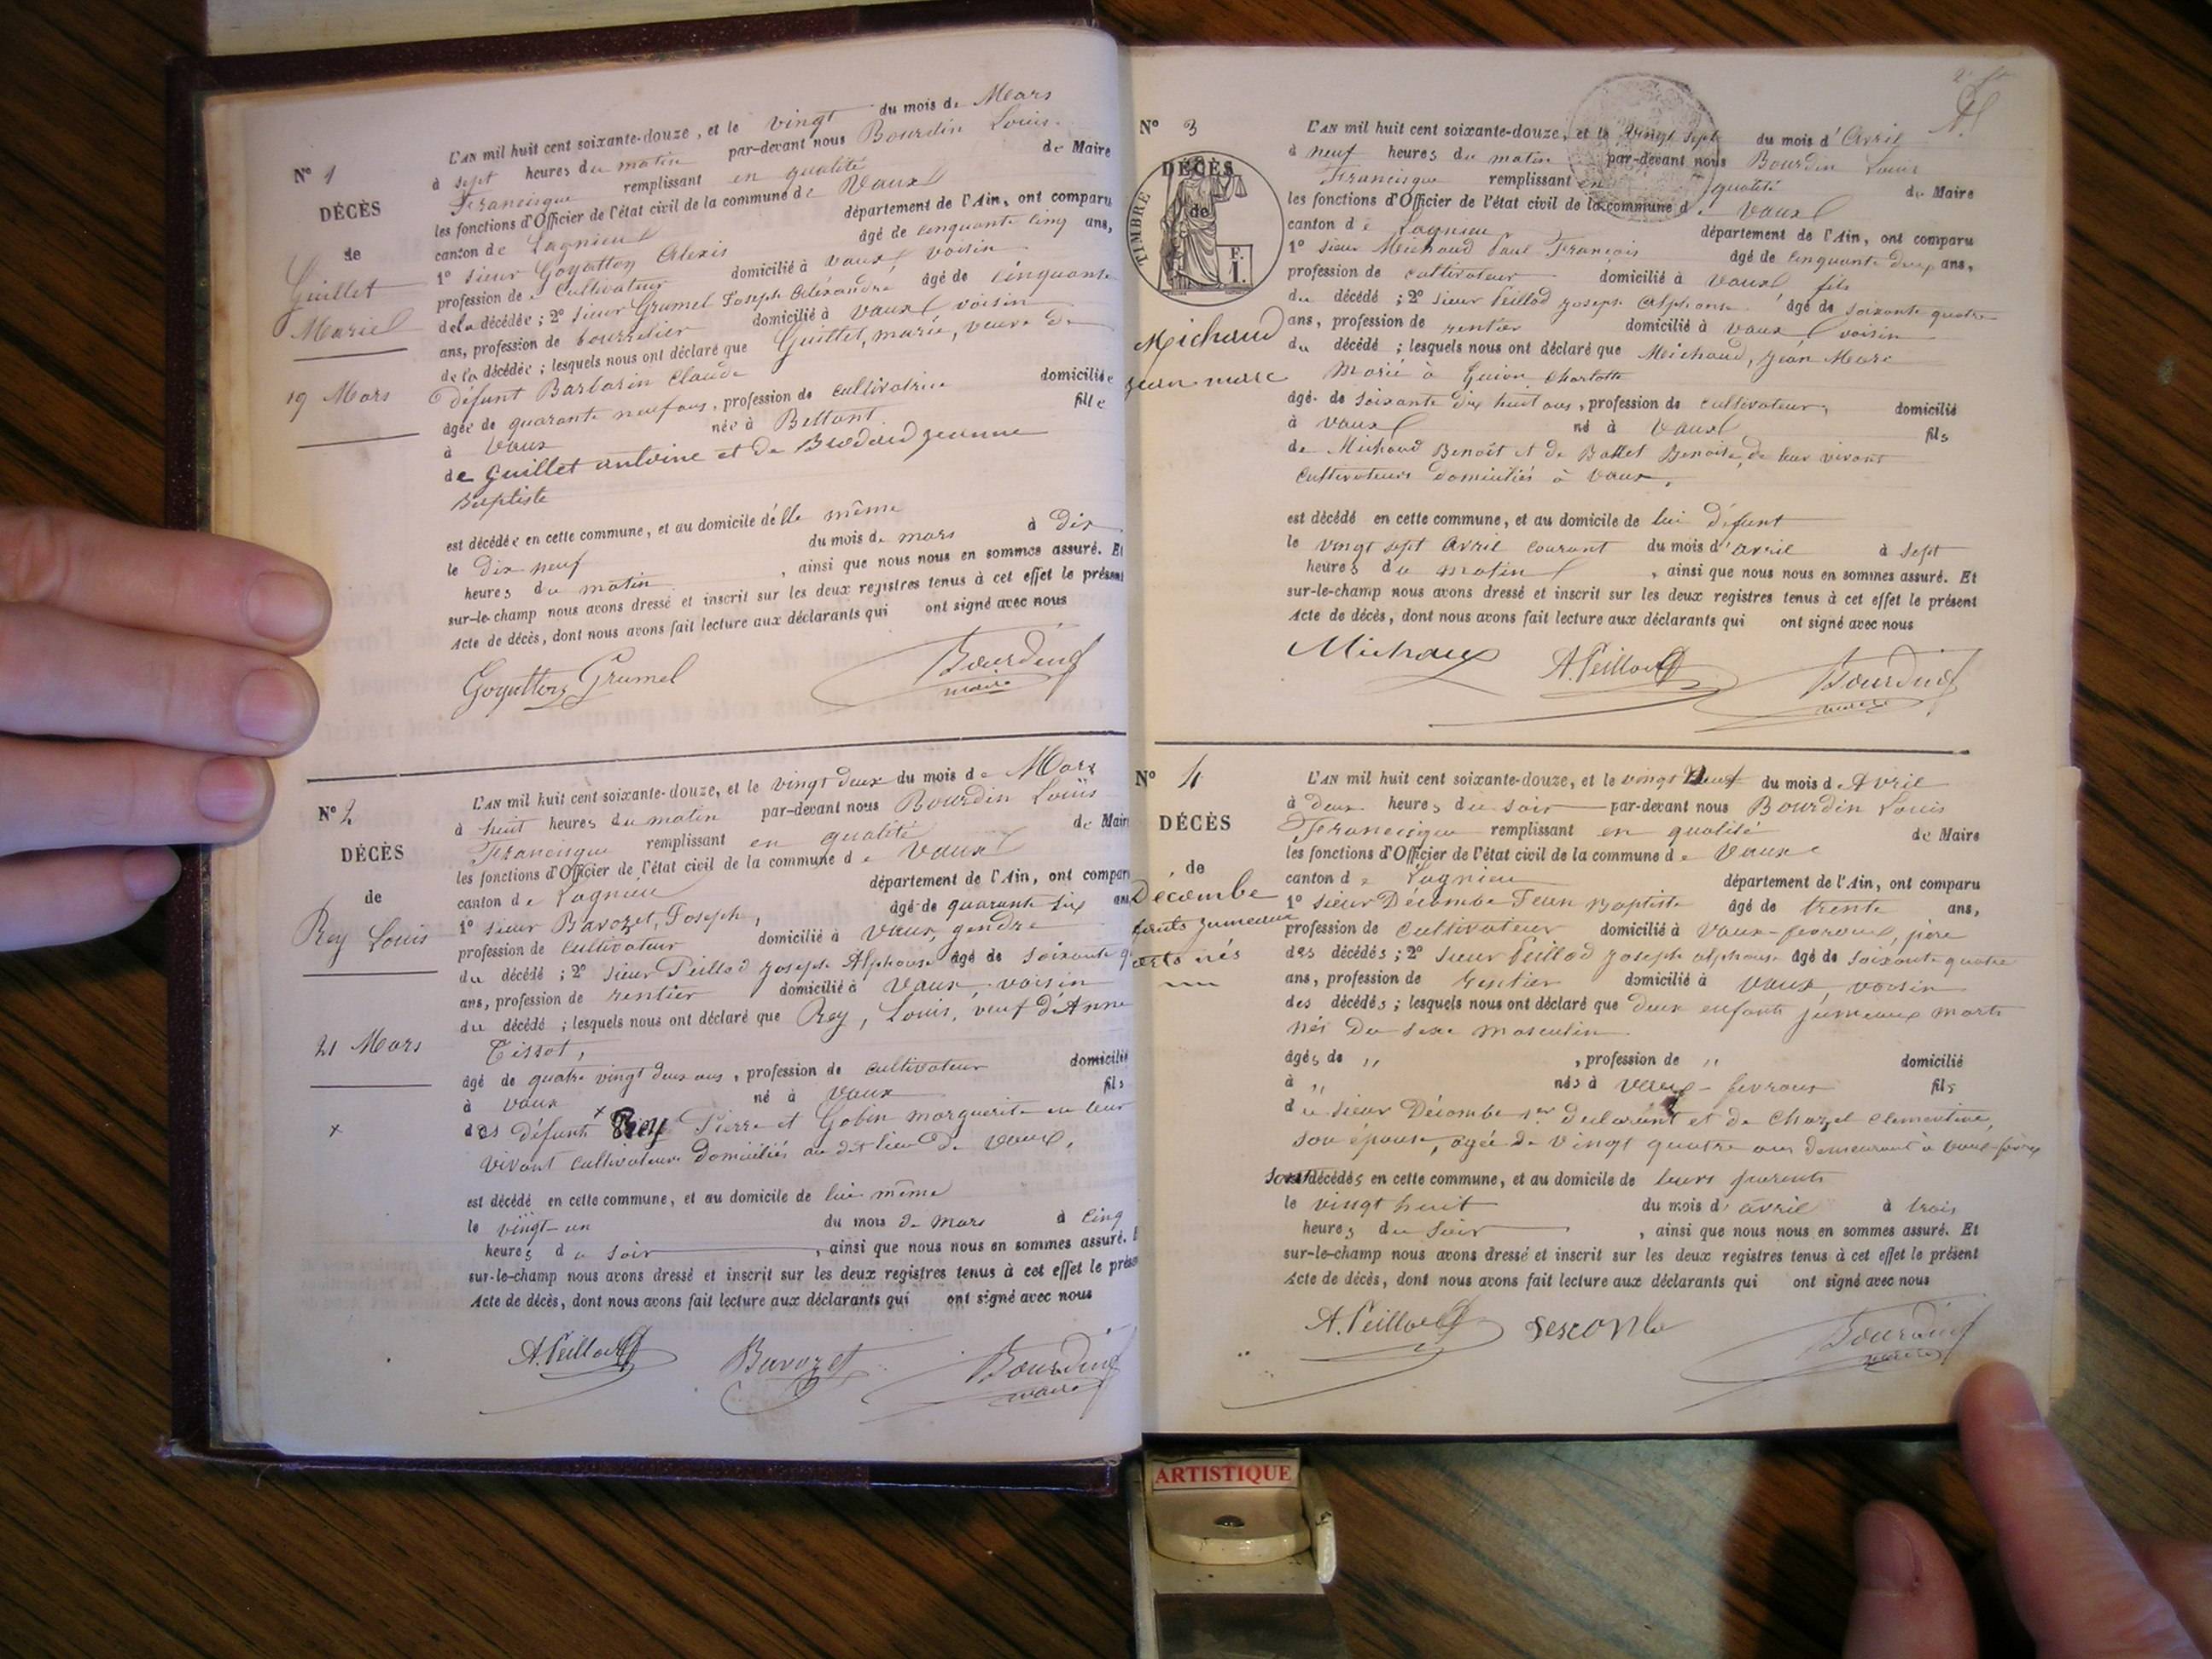 N° 1
DÉCÈS
de
Guillet
Marie
19 Mars
L'AN mil huit cent soixante-douze, et le vingt du mois de Mars
à sept heures du matin par-devant nous Bourdin Louis
Francisque remplissant en qualité de Maire
les fonctions d'Officier de l'état civil de la commune de Vaux
canton de Lagnieu département de l'Ain, ont comparu
1° sieur Goyatton Alexis âgé de cinquante cinq ans,
profession de Cultivateur domicilié à Vaux voisin
de la décédée ; 2° sieur Grumel Joseph Alexandre âgé de cinquante
ans, profession de bourrelier domicilié à Vaux voisin
de la décédée ; lesquels nous ont déclaré que Guillet, marie, veuve de
défunt Barbarin Claude
âgée de quarante neuf ans, profession de cultivatrice domiciliée
à Vaux née à Bettant fille
de Guillet antoine et de Brodard jeanne
Baptiste
est décédée en cette commune, et au domicile d'elle même
le dix neuf du mois de mars à dix
heures du matin , ainsi que nous nous en sommes assuré. Et
sur-le-champ nous avons dressé et inscrit sur les deux registres tenus à cet effet le présent
Acte de décès, dont nous avons fait lecture aux déclarants qui ont signé avec nous
Goyatton Grumel Bourdin
maire
N° 2
DÉCÈS
de
Rey Louis
21 Mars
x
L'AN mil huit cent soixante-douze, et le vingt deux du mois de Mars
à huit heures du matin par-devant nous Bourdin Louis
Francisque remplissant en qualité de Maire
les fonctions d'Officier de l'état civil de la commune de Vaux
canton de Lagnieu département de l'Ain, ont comparu
1° sieur Bavozet, Joseph, âgé de quarante six ans
profession de Cultivateur domicilié à Vaux, gendre
du décédé ; 2° sieur Peillod Joseph Alphonse âgé de soixante q
ans, profession de rentier domicilié à Vaux, voisin
du décédé ; lesquels nous ont déclaré que Rey, Louis, veuf d'Anne
Tissot,
âgé de quatre vingt deux ans, profession de cultivateur domicilié
à Vaux né à Vaux fils
des défunts x Rey Pierre et Gobin marguerite en leur
vivant cultivateurs domiciliés au dit lieu de Vaux,
est décédé en cette commune, et au domicile de lui même
le vingt-un du mois de mars à cinq
heures du soir , ainsi que nous nous en sommes assuré. E
sur-le-champ nous avons dressé et inscrit sur les deux registres tenus à cet effet le prése
Acte de décès, dont nous avons fait lecture aux déclarants qui ont signé avec nous
A. Peillod Bavozet Bourdin
maire
N° 3
DÉCÈS
de
TIMBRE
1 F.
Michaud
jean marc
L'AN mil huit cent soixante-douze, et le vingt sept du mois d'Avril
à neuf heures du matin par-devant nous Bourdin Louis
Francisque remplissant en qualité de Maire
les fonctions d'Officier de l'état civil de la commune de Vaux
canton de Lagnieu département de l'Ain, ont comparu
1° sieur Michaud Paul François âgé de cinquante deux ans,
profession de cultivateur domicilié à Vaux fils
du décédé ; 2° sieur Peillod Joseph Alphonse âgé de soixante quatre
ans, profession de rentier domicilié à Vaux voisin
du décédé ; lesquels nous ont déclaré que Michaud, Jean Marc
Marié à Guion Charlotte
âgé de soixante dix huit ans, profession de cultivateur, domicilié
à Vaux né à Vaux fils
de Michaud Benoît et de Ballet Benoite, de leur vivant
cultivateurs domiciliés à Vaux,
est décédé en cette commune, et au domicile de lui défunt
le vingt sept Avril courant du mois d'avril à sept
heures du matin , ainsi que nous nous en sommes assuré. Et
sur-le-champ nous avons dressé et inscrit sur les deux registres tenus à cet effet le présent
Acte de décès, dont nous avons fait lecture aux déclarants qui ont signé avec nous
Michaud A. Peillod Bourdin
maire
N° 4
DÉCÈS
de
Décombe
jumeaux
nés
L'AN mil huit cent soixante-douze, et le vingt neuf du mois d'Avril
à deux heures du soir par-devant nous Bourdin Louis
Francisque remplissant en qualité de Maire
les fonctions d'Officier de l'état civil de la commune de Vaux
canton de Lagnieu département de l'Ain, ont comparu
1° sieur Décombe Jean Baptiste âgé de trente ans,
profession de Cultivateur domicilié à Vaux-fevroux, père
des décédés ; 2° sieur Peillod Joseph alphonse âgé de soixante quatre
ans, profession de Rentier domicilié à Vaux, voisin
des décédés ; lesquels nous ont déclaré que deux enfants jumeaux morts
nés du sexe masculin
âgés de ,, , profession de ,, domicilié
à ,, nés à Vaux-fevroux fils
du sieur Décombe 1er déclarant et de Chazel Clementine,
son épouse, agée de vingt quatre ans demeurant à Vaux-fevroux
sont décédés en cette commune, et au domicile de leurs parents
le vingt huit du mois d'avril à trois
heures du soir , ainsi que nous nous en sommes assuré. Et
sur-le-champ nous avons dressé et inscrit sur les deux registres tenus à cet effet le présent
Acte de décès, dont nous avons fait lecture aux déclarants qui ont signé avec nous
A. Peillod Descombe Bourdin
maire
ARTISTIQUE